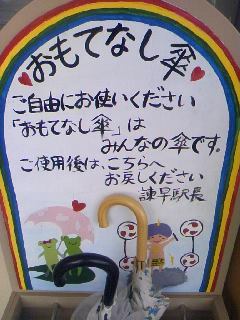 おもてなし傘
ご自由にお使いください
「おもてなし傘」は
みんなの傘です。
ご使用後は、こちらへ
お戻しください
諫早駅長